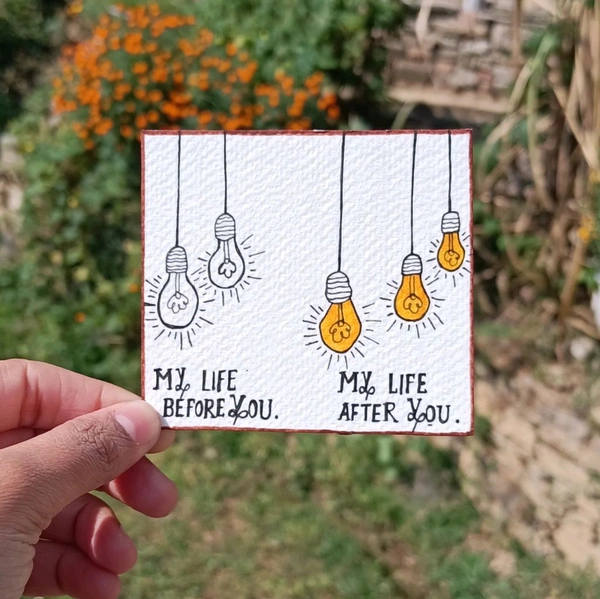 MY LIFE
BEFORE YOU.
MY LIFE
AFTER YOU.